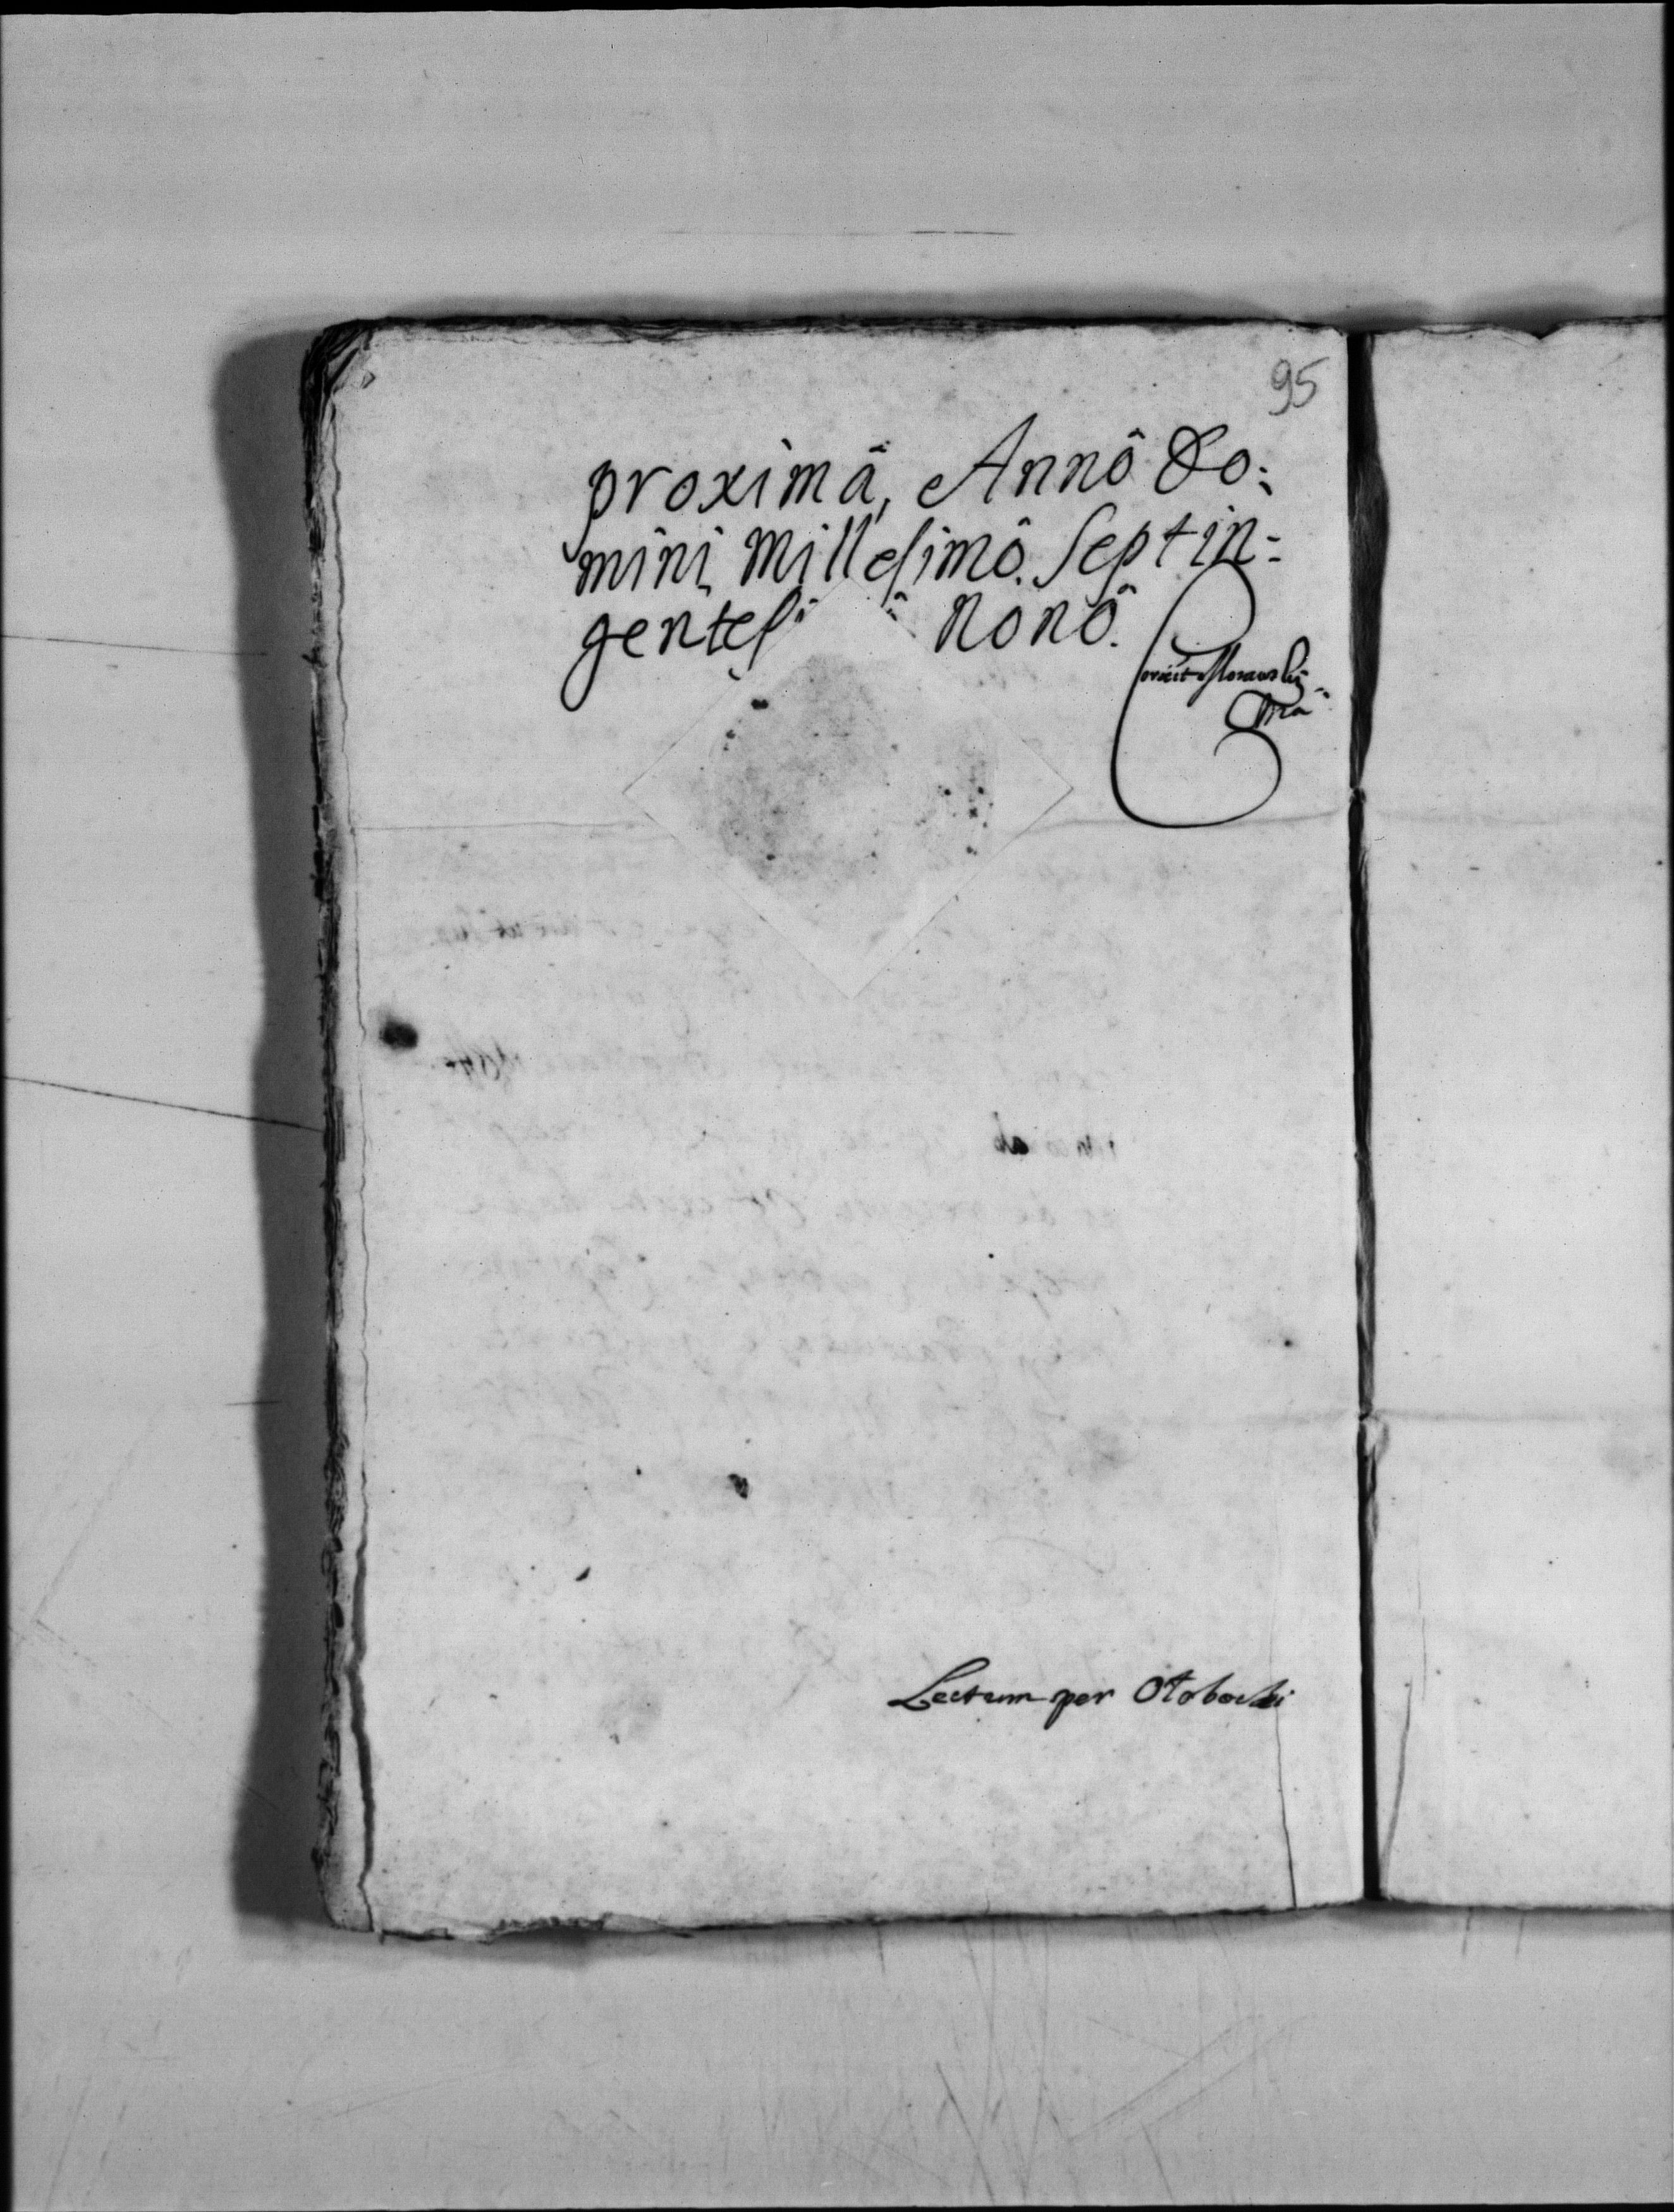 95
proximâ, Annô Do:
mini Millesimô. Septin:
gentesi nonô.
Correxit Morawski
mp
Lectum per Otobocki